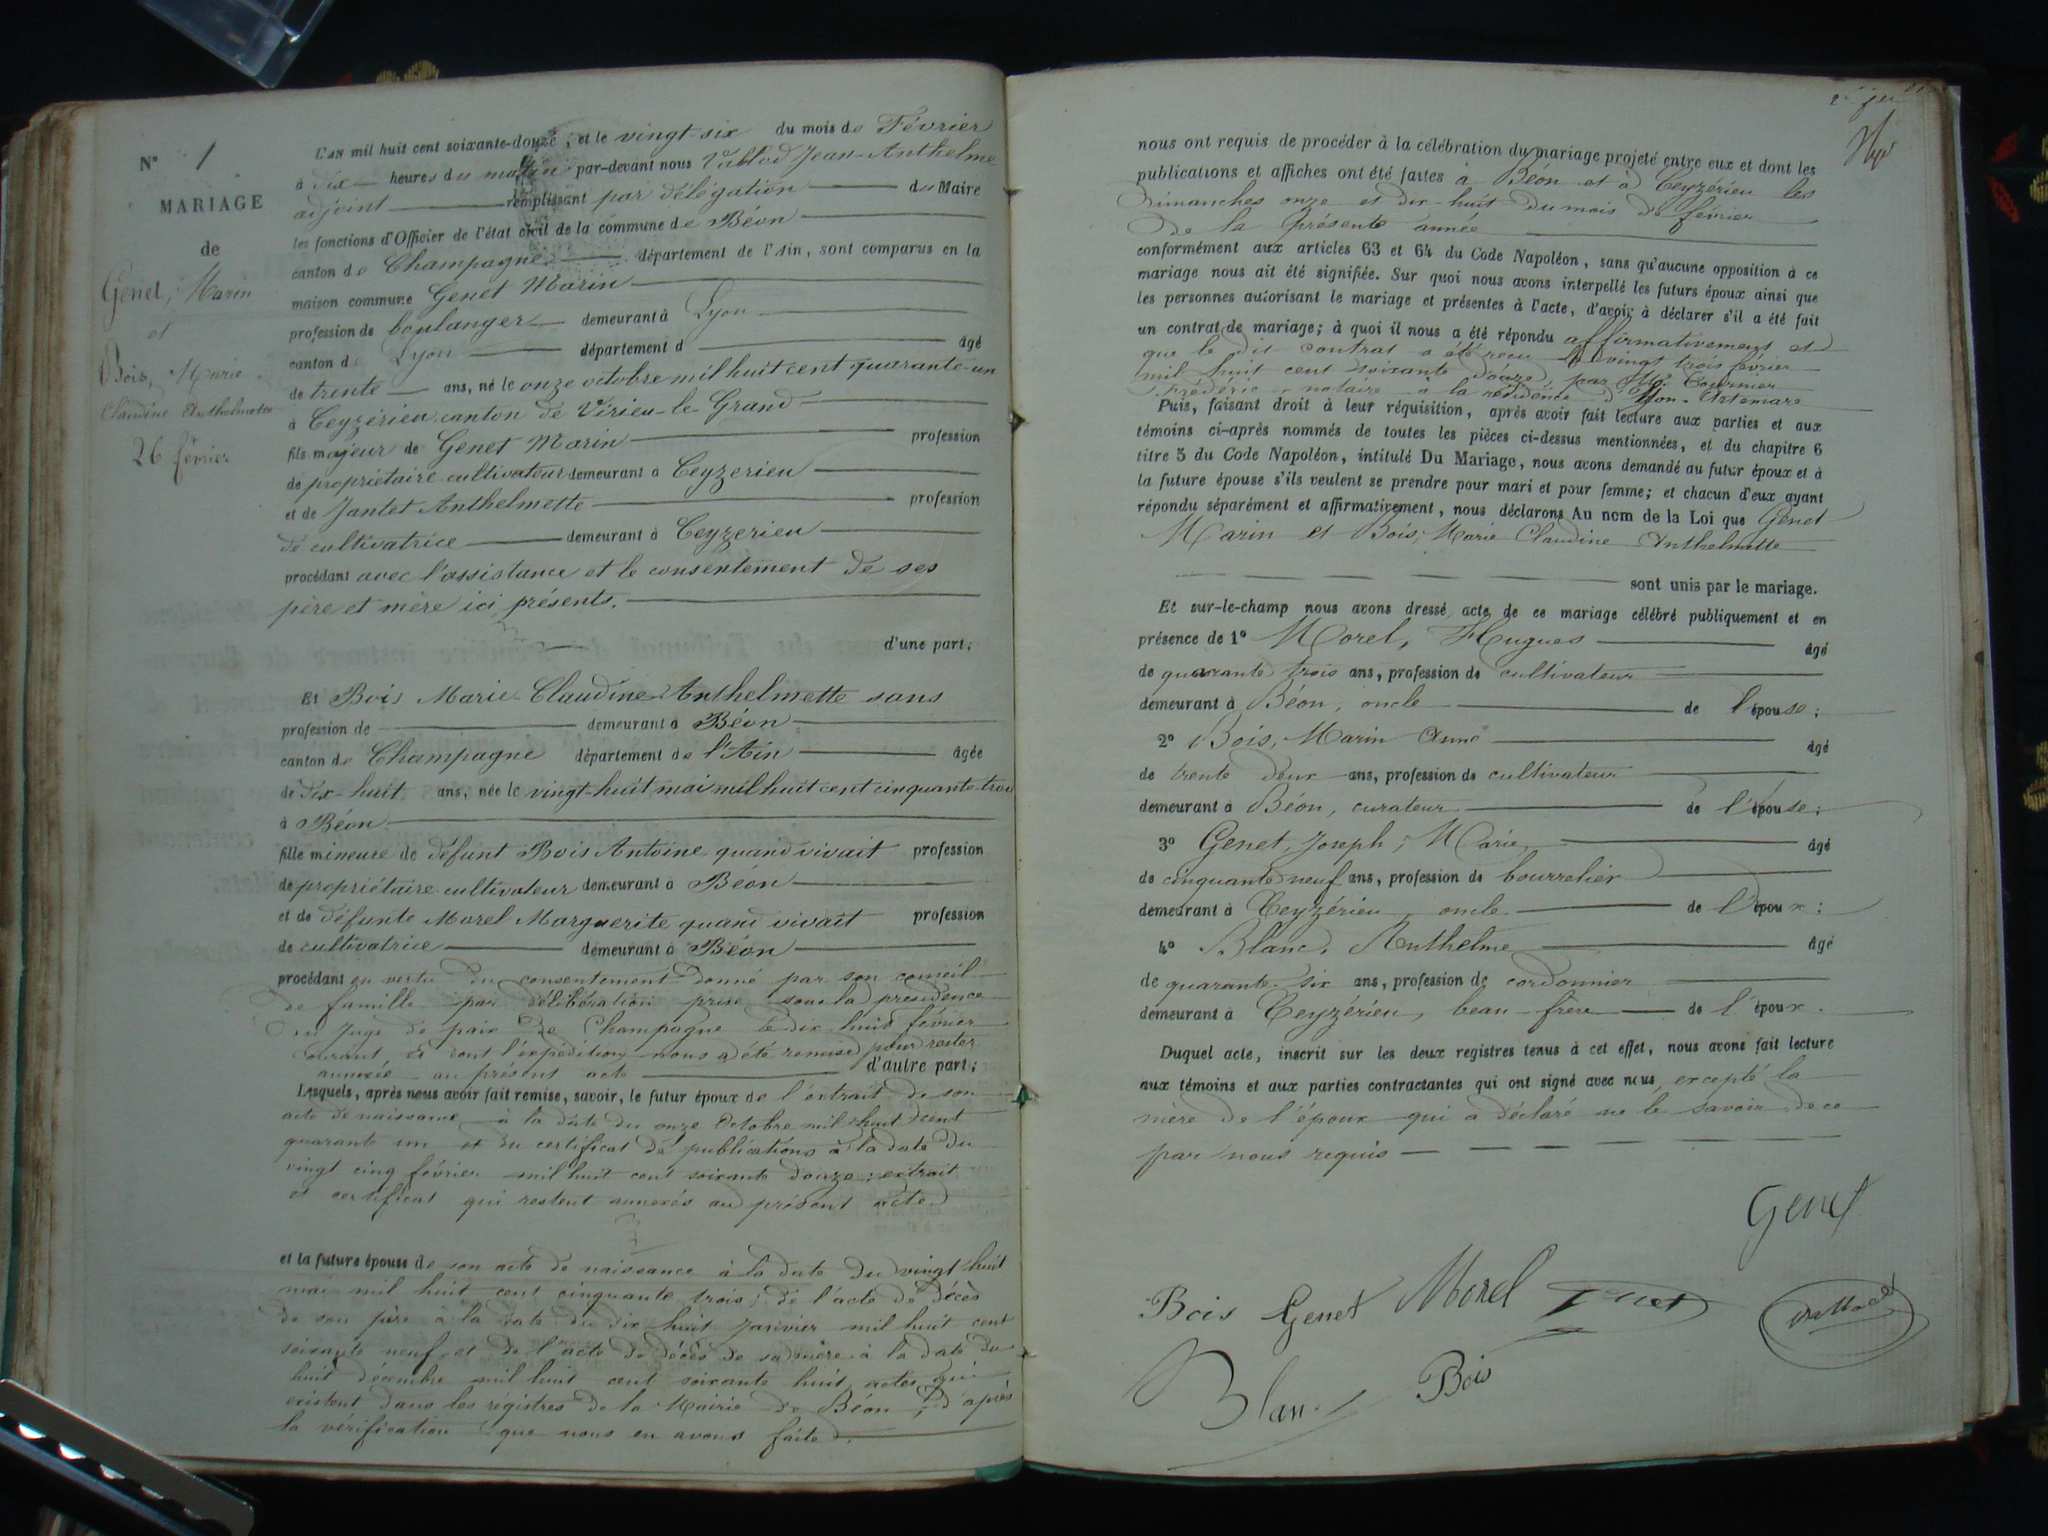 N° 1
MARIAGE
de
Genet, Marin
et
Bois, Marie
Claudine Anthelmette
26 février
L'AN mil huit cent soixante-douze, et le vingt-six du mois de Février
à dix heures du matin par-devant nous Vallod Jean-Anthelme
adjoint remplissant par délégation du Maire
les fonctions d'Officier de l'état civil de la commune de Béon
canton de Champagne département de l'Ain, sont comparus en la
maison commune Genet Marin
profession de boulanger demeurant à Lyon
canton de Lyon département d âgé
de trente ans, né le onze octobre mil huit cent quarante-un
à Ceyzérieu canton de Virieu-le-Grand
fils majeur de Genet Marin profession
de propriétaire cultivateur demeurant à Ceyzerieu
et de Jantet Anthelmette profession
de cultivatrice demeurant à Ceyzerieu
procédant avec l'assistance et le consentement de ses
père et mère ici présents.
d'une part;
Et Bois Marie Claudine Anthelmette sans
profession de demeurant à Béon
canton de Champagne département de l'Ain âgée
de dix-huit ans, née le vingt-huit mai mil huit cent cinquante-trois
à Béon
fille mineure de défunt Bois Antoine quand vivait profession
de propriétaire cultivateur demeurant à Béon
et de défunte Morel Marguerite quand vivait profession
de cultivatrice demeurant à Béon
procédant en vertu du consentement donné par son conseil
de famille par délibération prise sous la présidence
du Juge de paix de Champagne le dix huit février
courant, et dont l'expédition nous a été remise pour rester
annexée au présent acte d'autre part;
Lesquels, après nous avoir fait remise, savoir, le futur époux de l'extrait de son
acte de naissance à la date du onze Octobre mil huit cent
quarante un et du certificat de publications à la date du
vingt cinq février mil huit cent soixante douze; extrait
et certificat qui restent annexés au présent acte
et la future épouse de son acte de naissance à la date du vingt huit
mai mil huit cent cinquante trois; de l'acte de décès
de son père à la date du dix huit Janvier mil huit cent
soixante neuf et de l'acte de décès de sa mère à la date du
huit décembre mil huit cent soixante huit, actes qui
existent dans les régistres de la Mairie de Béon, d'après
la vérification que nous en avons faite.
nous ont requis de procéder à la célébration du mariage projeté entre eux et dont les
publications et affiches ont été faites à Béon et à Ceyzérieu les
dimanches onze et dix-huit du mois de février
de la présente année
conformément aux articles 63 et 64 du Code Napoléon, sans qu'aucune opposition à ce
mariage nous ait été signifiée. Sur quoi nous avons interpellé les futurs époux ainsi que
les personnes autorisant le mariage et présentes à l'acte, d'avoir à déclarer s'il a été fait
un contrat de mariage; à quoi il nous a été répondu affirmativement et
que le dit contrat a été reçu le vingt trois février
mil huit cent soixante douze, par Me Tournier
Frédéric notaire à la résidence d'Yon-Artemare
Puis, faisant droit à leur réquisition, après avoir fait lecture aux parties et aux
témoins ci-après nommés de toutes les pièces ci-dessus mentionnées, et du chapitre 6
titre 5 du Code Napoléon, intitulé Du Mariage, nous avons demandé au futur époux et à
la future épouse s'ils veulent se prendre pour mari et pour femme; et chacun d'eux ayant
répondu séparément et affirmativement, nous déclarons Au nom de la Loi que Genet
Marin et Bois, Marie Claudine Anthelmette
sont unis par le mariage.
Et sur-le-champ nous avons dressé acte de ce mariage célébré publiquement et en
présence de 1° Morel, Hugues âgé
de quarante trois ans, profession de cultivateur
demeurant à Béon, oncle de l'épouse;
2° Bois, Marin Anne âgé
de trente deux ans, profession de cultivateur
demeurant à Béon, curateur de l'épouse;
3° Genet, Joseph, Marie âgé
de cinquante neuf ans, profession de bourrelier
demeurant à Ceyzérieu, oncle de l'époux;
4° Blanc, Anthelme âgé
de quarante-six ans, profession de cordonnier
demeurant à Ceyzérieu, beau-frère de l'époux.
Duquel acte, inscrit sur les deux registres tenus à cet effet, nous avons fait lecture
aux témoins et aux parties contractantes qui ont signé avec nous, excepté la
mère de l'époux qui a déclaré ne le savoir de ce
par nous requis
Genet
Bois Genet Morel Genet Vallod
Blanc Bois